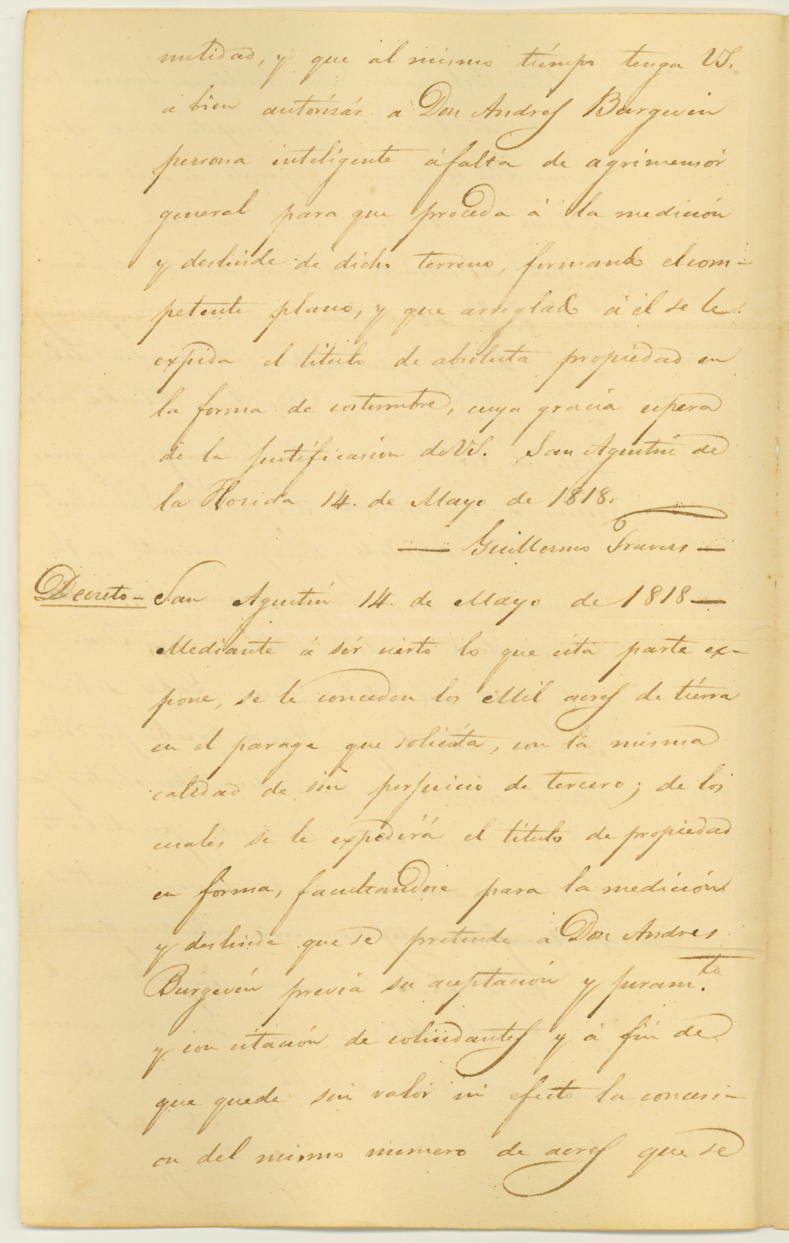 nutidad, y que al mismo tiempo tenga VS.
a bien autorisár á Don Andres Burgevin
persona inteligente áfalta de agrimensór
general para que proceda á la medición
y deslinde de dicho terreno, formando elcom-
petente plano, y que arreglado á él se le
expida el titulo de absoluta propiedad en
la forma de costumbre, cuya gracia espera
de la justificasion deVS. San Agustin de
la Florida 14. de Mayo de 1818.
— Guillermo Travers —
Decreto — San Agustin 14. de Mayo de 1818 —
Mediante á sér cierto lo que esta parte ex-
pone, se le conceden los Mil acres de tierra
en el parage que solicita, con la misma
calidad de sin perjuicio de tercero; de los
cuales se le expedirá el titulo de propiedad
en forma, facultandose para la medición
y deslinde que se pretende á Don Andres
Burgevin previa su aceptación y juram.to
y con citación de colindantes y á fin de
que quede sin valór ni efecto la concesi-
on del mismo numero de acres que se